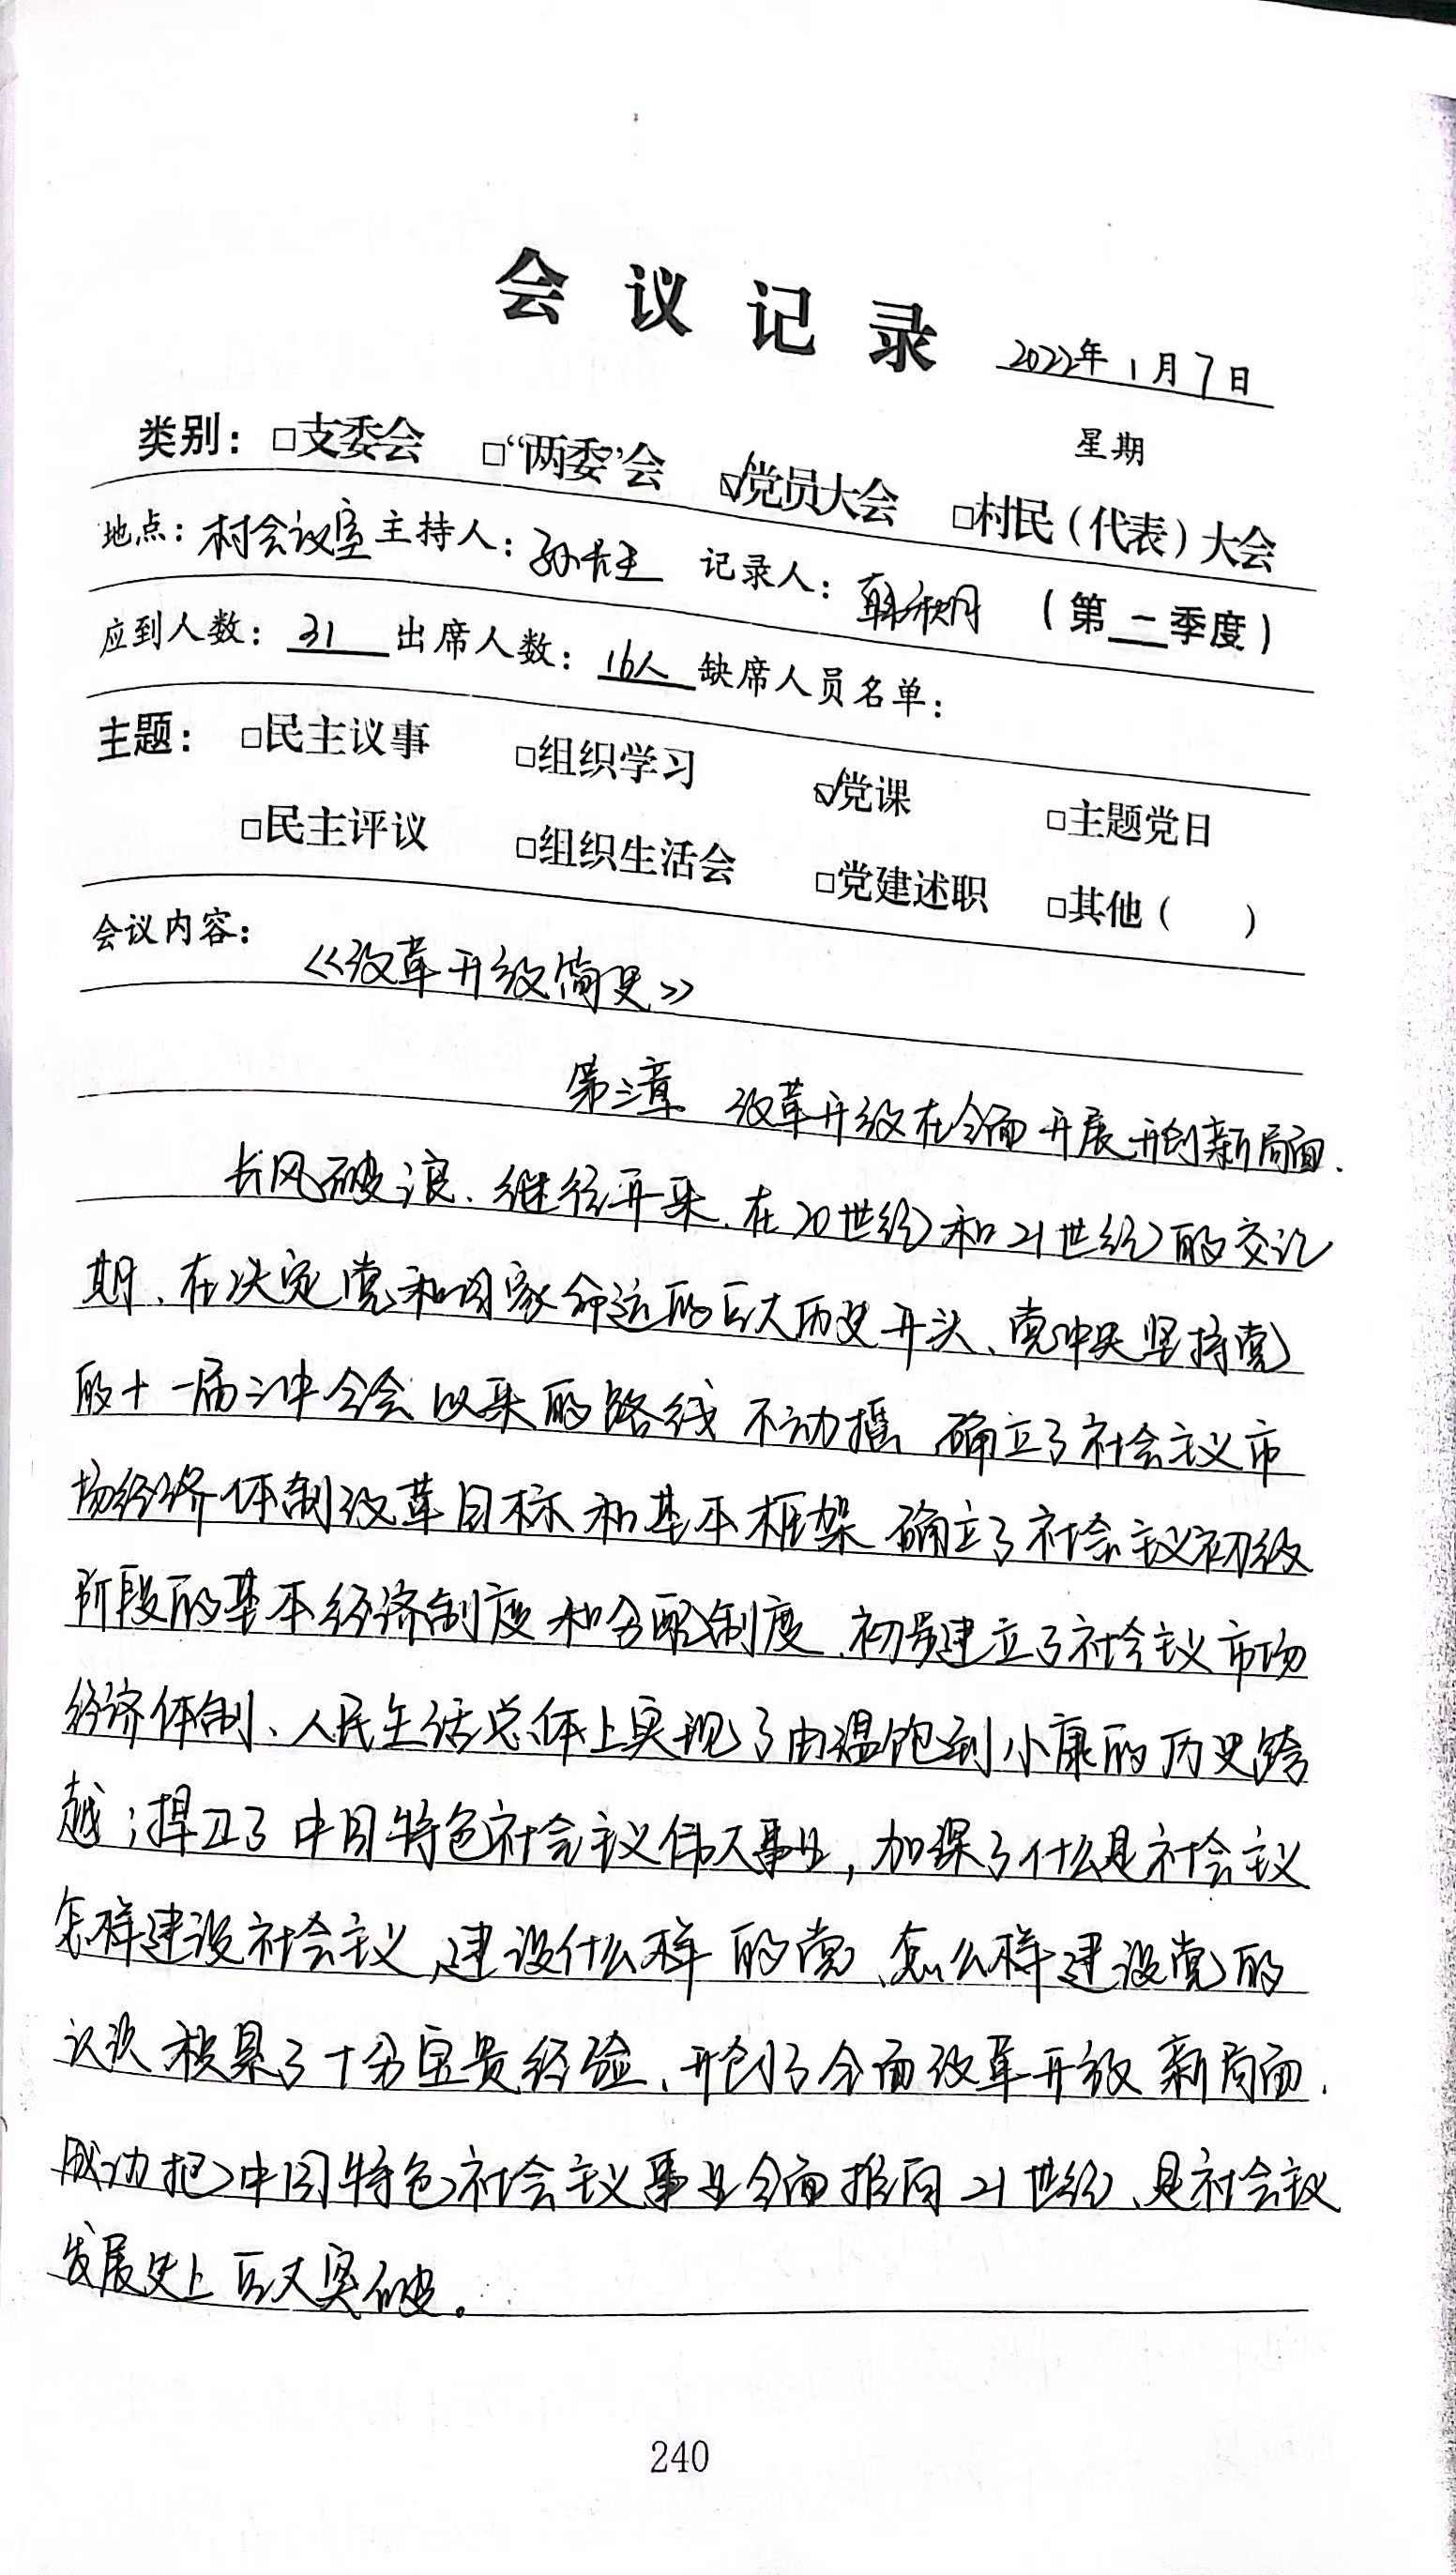 会议记录
2022年1月7日
星期
类别：□支委会 □“两委”会 ☑党员大会 □村民（代表）大会
地点：村会议室 主持人：孙长 记录人：韩秋月 （第一季度）
应到人数：31 出席人数：16人 缺席人员名单：
主题：□民主议事 □组织学习 ☑党课 □主题党日
□民主评议 □组织生活会 □党建述职 □其他（ ）
会议内容：《改革开放简史》
第三章 改革开放在全面开展开创新局面.
长风破浪、继往开来、在20世纪和21世纪的交汇
期、在决定党和国家命运的巨大历史开头、党中央坚持党
的十一届三中全会以来的路线不动摇 确立了社会主义市
场经济体制改革目标和基本框架 确立了社会主义初级
阶段的基本经济制度和分配制度、初步建立了社会主义市场
经济体制、人民生活总体上实现了由温饱到小康的历史跨
越；捍卫了中国特色社会主义伟大事业，加深了什么是社会主义
怎样建设社会主义，建设什么样的党、怎么样建设党的
认识 积累了十分宝贵经验、开创了全面改革开放新局面.
成功把中国特色社会主义事业全面推向21世纪、是社会主义
发展史上巨大突破。
240